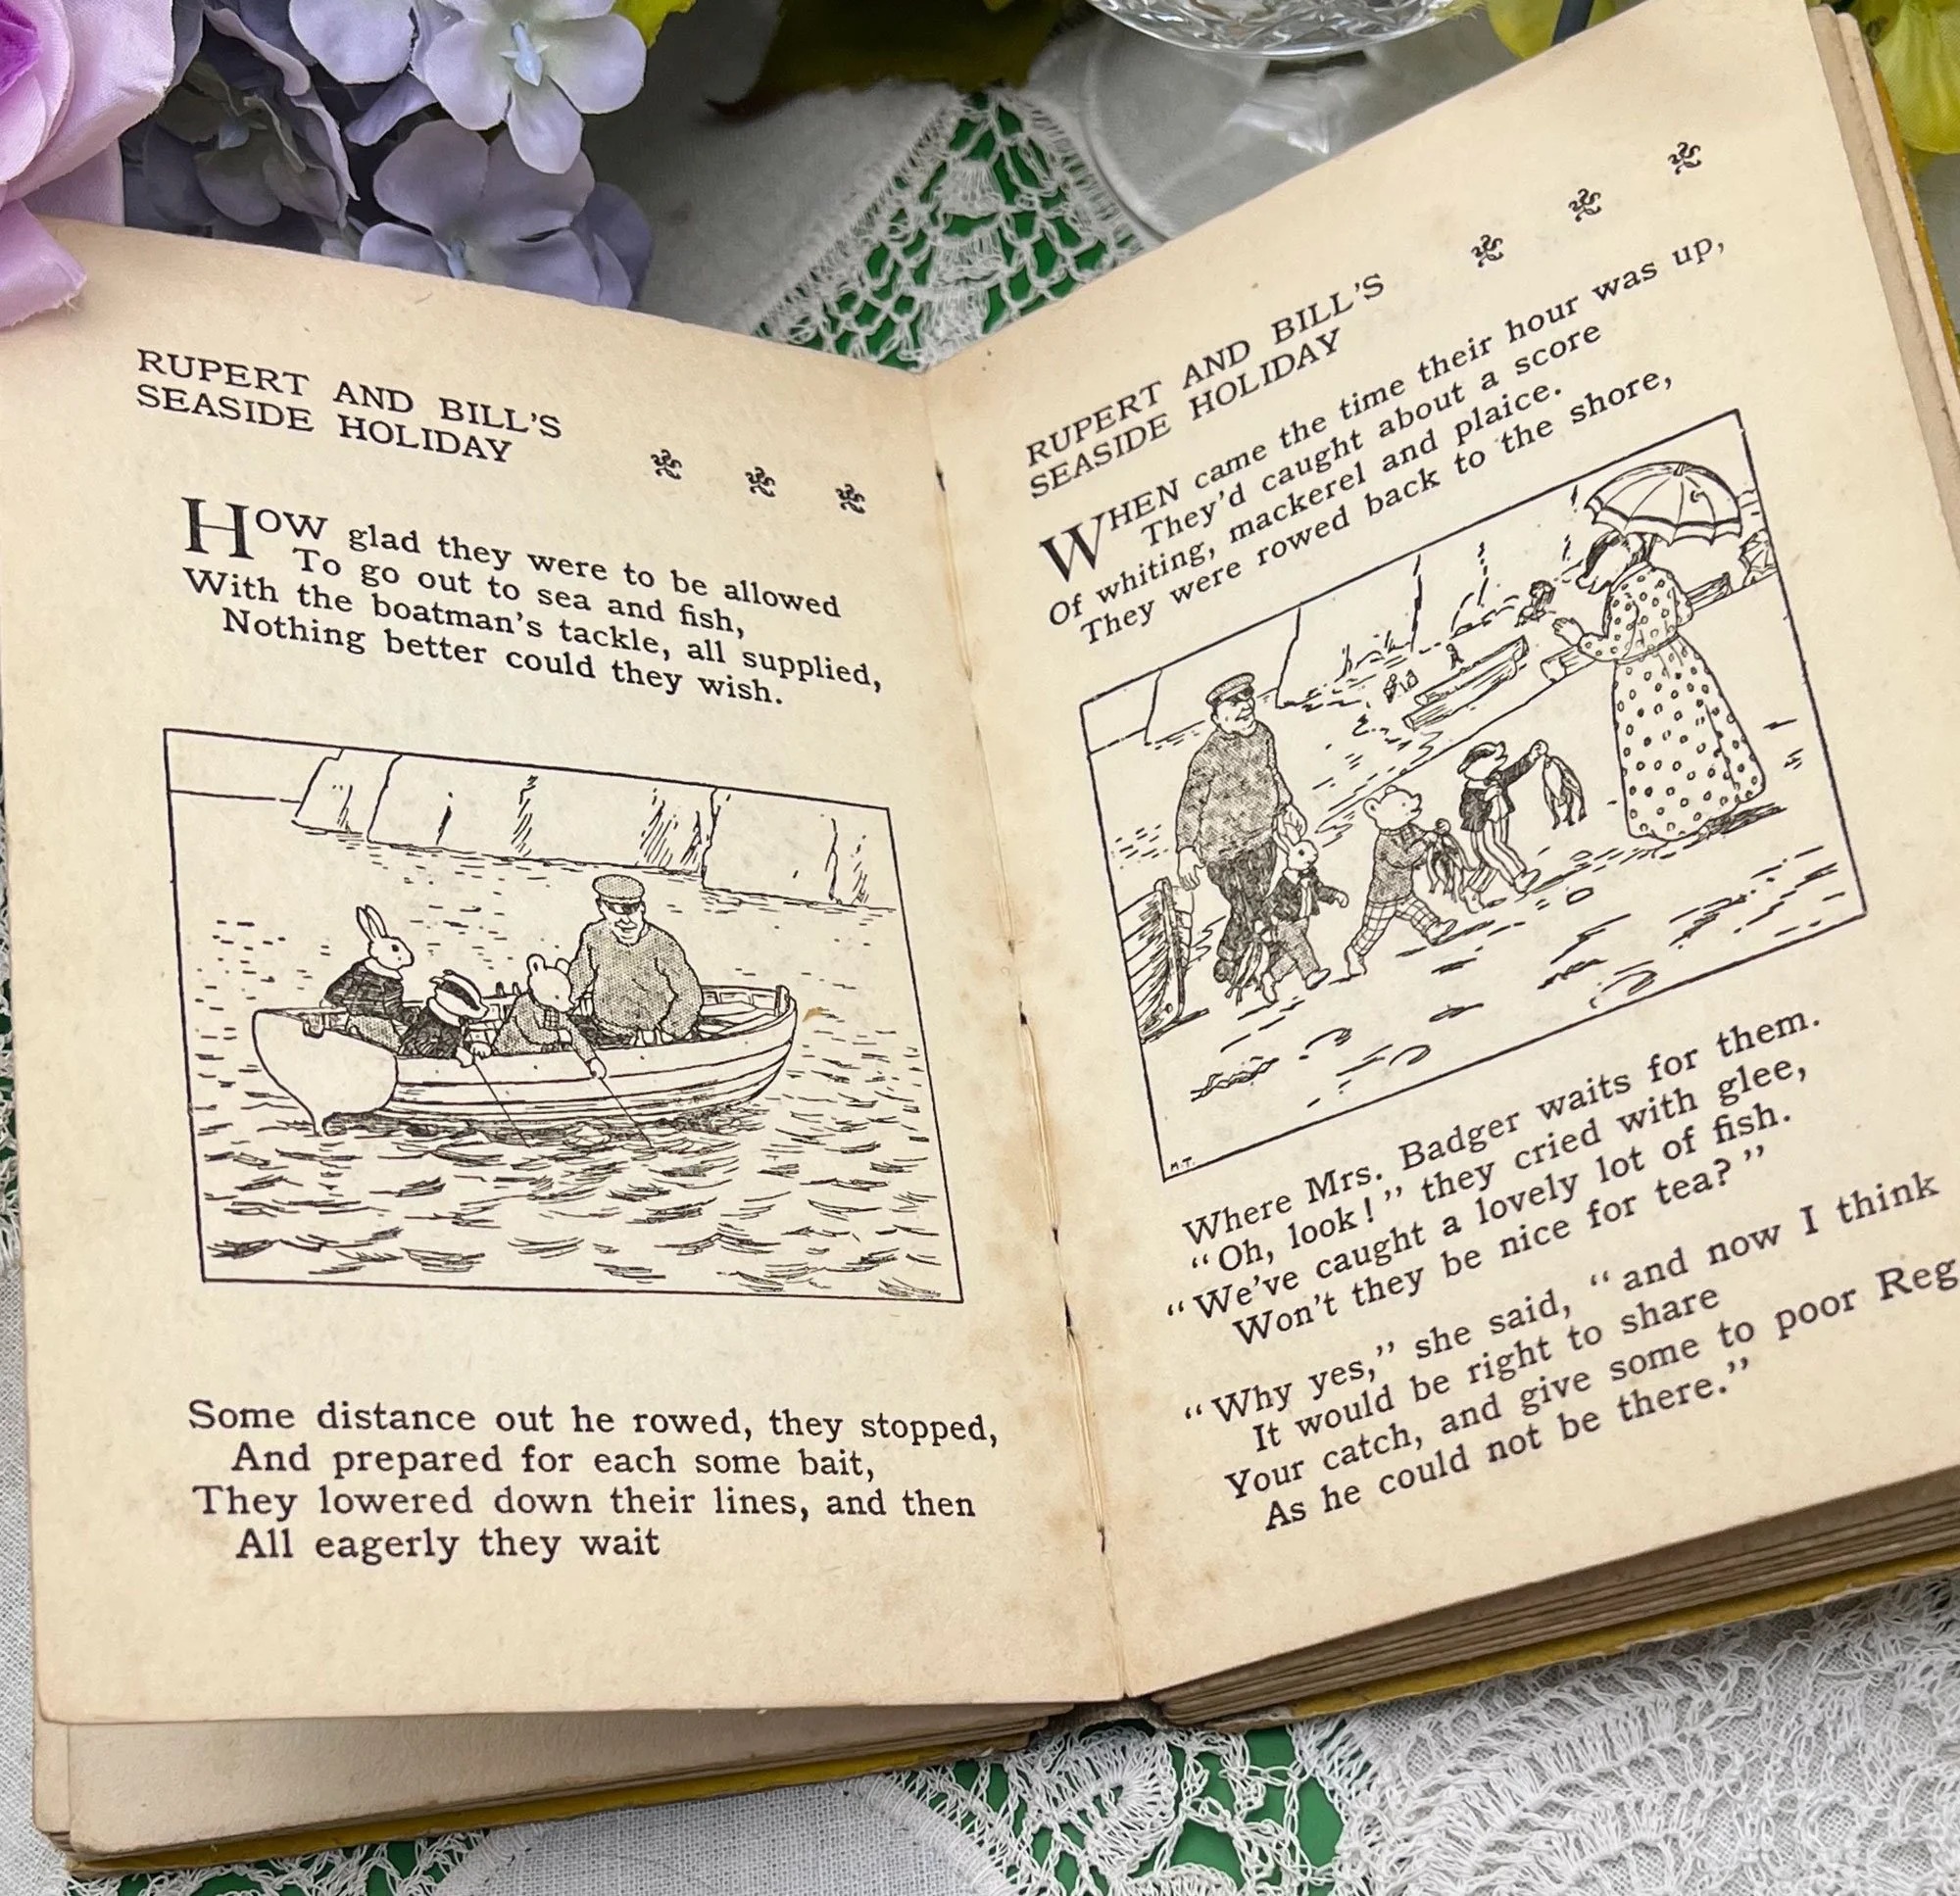 RUPERT AND BILL'S
SEASIDE HOLIDAY
HOW glad they were to be allowed
To go out to sea and fish,
With the boatman's tackle, all supplied,
Nothing better could they wish.
Some distance out he rowed, they stopped,
And prepared for each some bait,
They lowered down their lines, and then
All eagerly they wait
RUPERT AND BILL'S
SEASIDE HOLIDAY
WHEN came the time their hour was up,
They'd caught about a score
Of whiting, mackerel and plaice.
They were rowed back to the shore,
M.T.
Where Mrs. Badger waits for them.
"Oh, look!" they cried with glee,
"We've caught a lovely lot of fish.
Won't they be nice for tea?"
"Why yes," she said, "and now I think
It would be right to share
Your catch, and give some to poor Reg
As he could not be there."